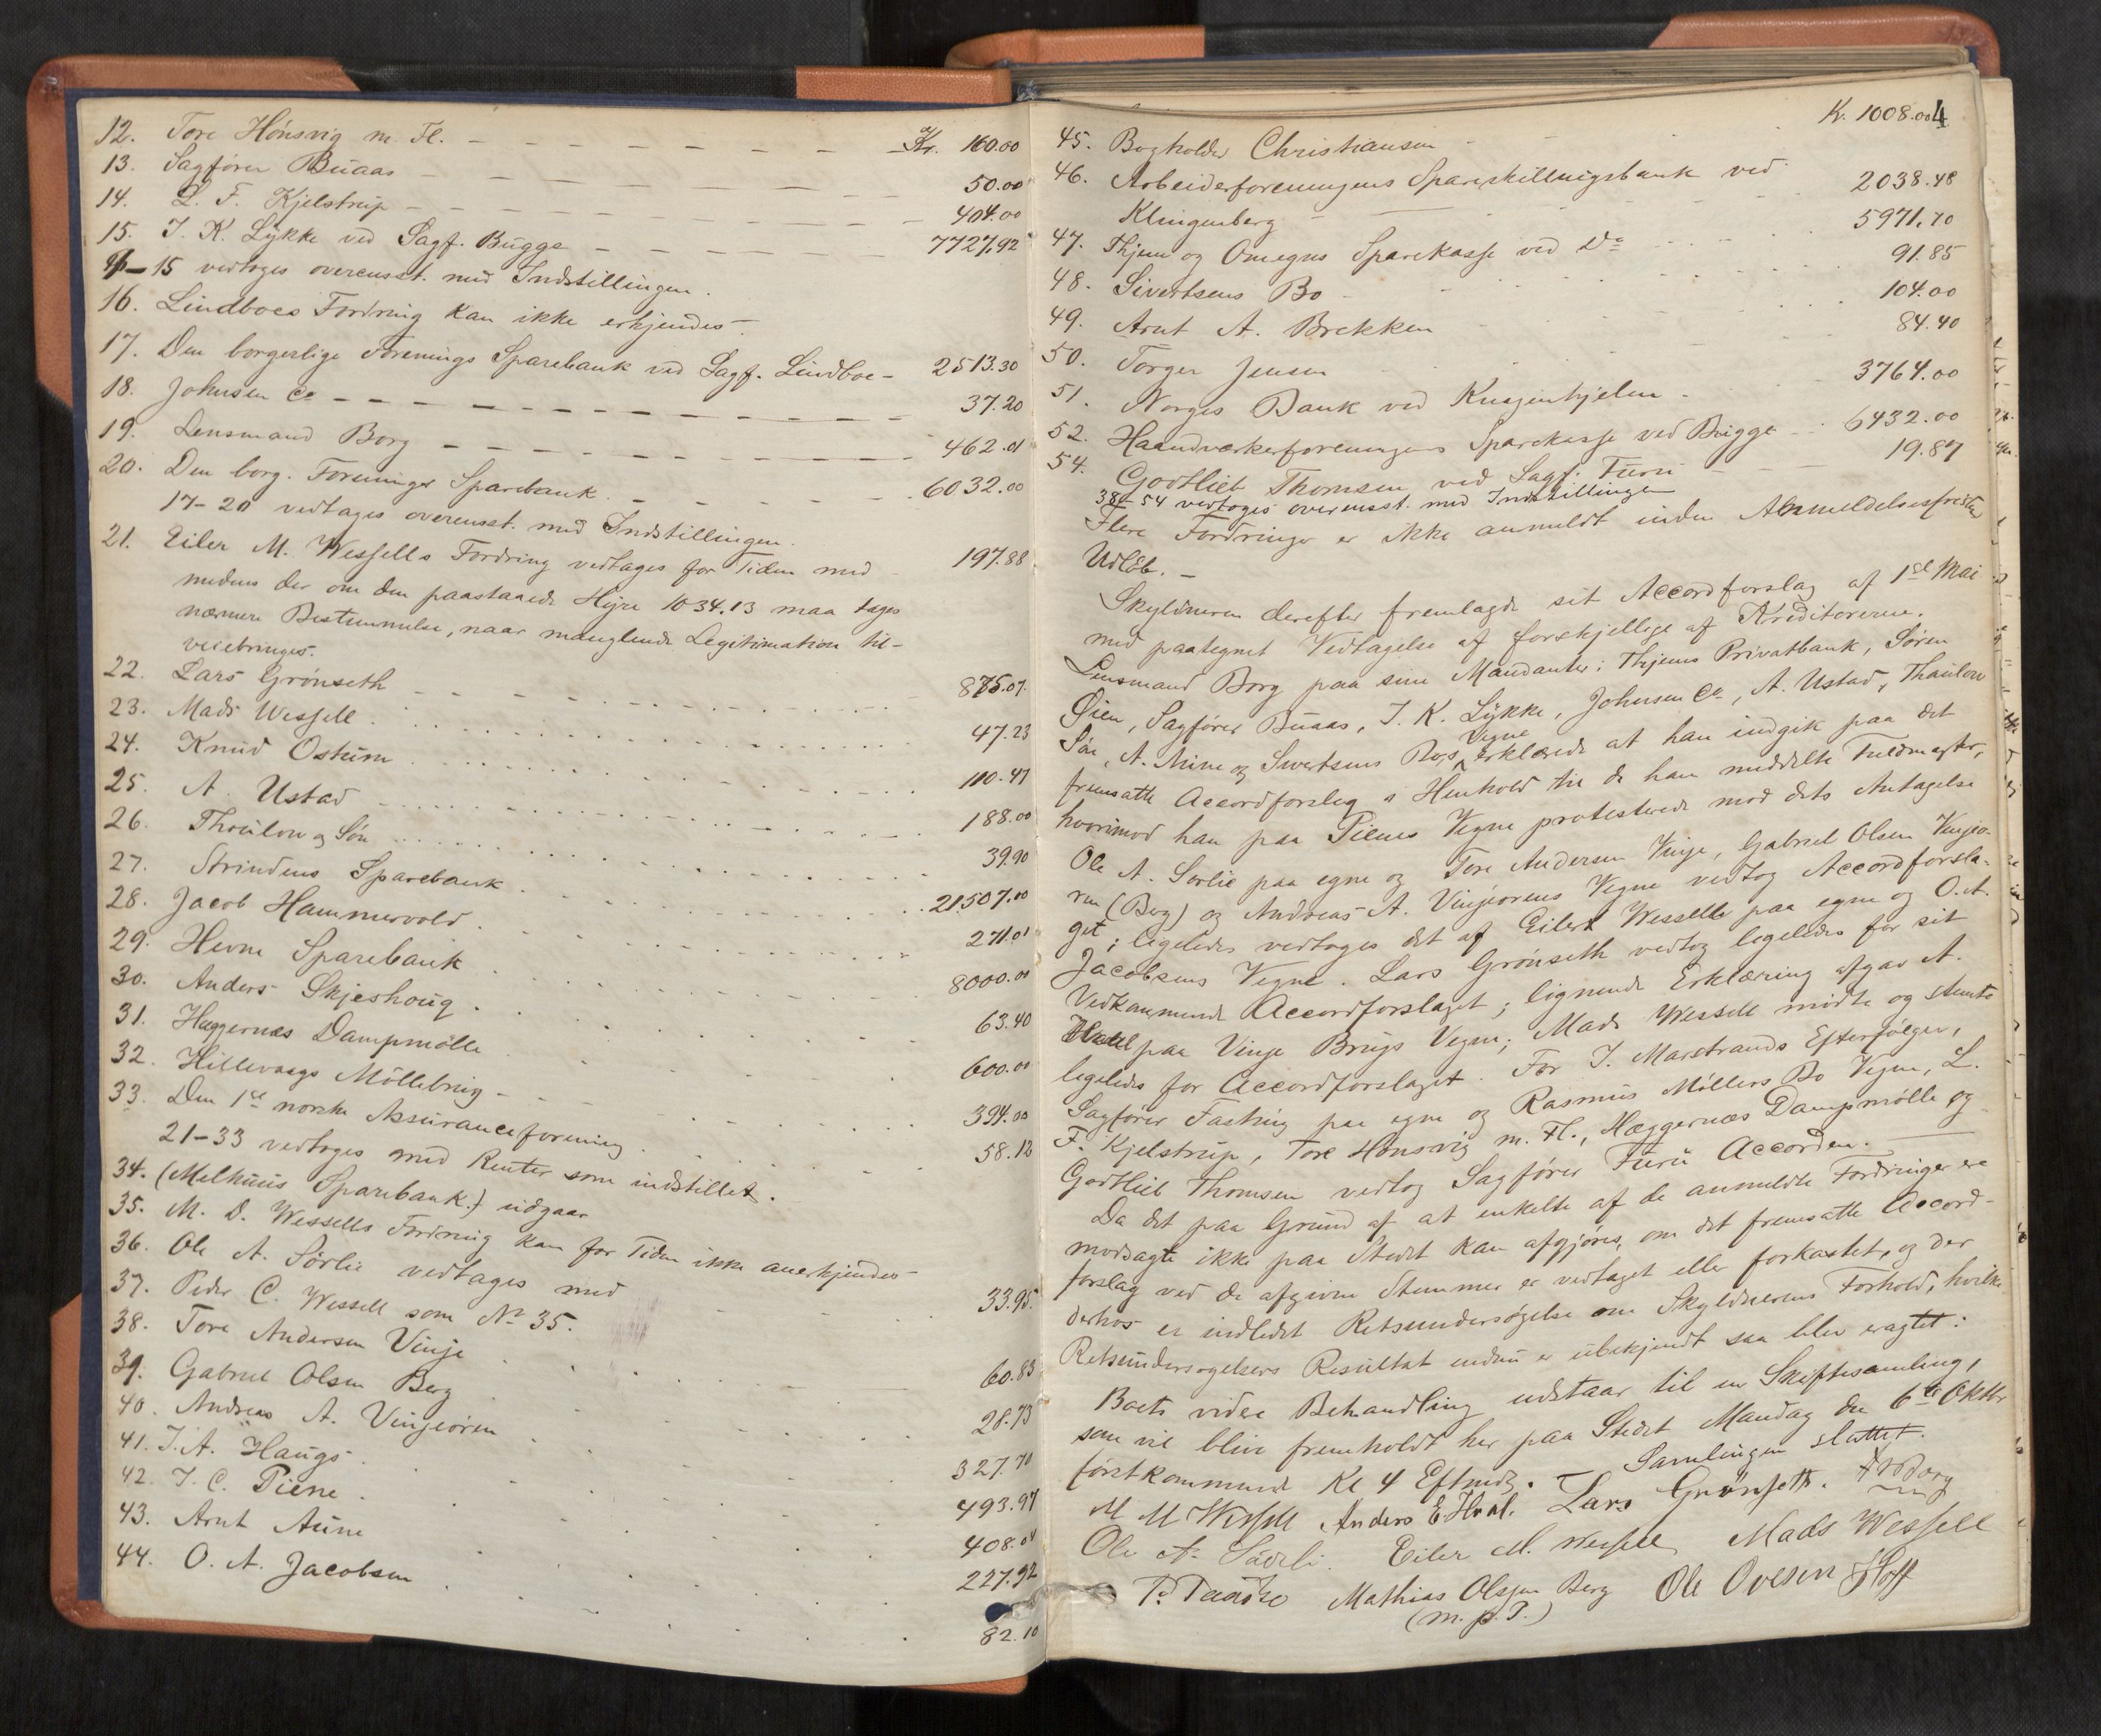 12. Tore Hønsvig m. Fl. — Kr. 160.00
13. Sagfører Buaas — 50.00
14. L. F. Kjelstrup — 404.00
15. I. K. Lykke ved Sagf. Bugge — 7727.92
—15 vedtoges overensst. med Indstillingen.
16. Lindboes Fordring kan ikke erkjendes.
17. Den borgerlige Forenings Sparebank ved Sagf. Lindboe — 2513.30
18. Johnsen Co — 37.20
19. Lensmand Borg — 462.01
20. Den borg. Forenings Sparebank. — 6032.00
17–20 vedtages overensst. med Indstillingen.
21. Eiler M. Wessells Fordring vedtages for Tiden med — 197.88
medens der om den paastaaede Hyre 1034.13 maa tages
nærmere Bestemmelse, naar manglende Legitimation til-
veiebringes.
22. Lars Grønseth — 875.07
23. Mads Wessell. 47.23
24. Knud Ostum 110.47
25. A. Ustad 188.00
26. Thaulow og Søn 39.90
27. Strindens Sparebank. 21507.00
28. Jacob Hammervold. 271.01
29. Hevne Sparebank 8000.00
30. Anders Skjeshoug. 63.40
31. Hæggernæs Dampmølle 600.00
32. Hillevaags Møllebrug — 394.00
33. Den 1ste norske Assuranceforening 58.12
21–33 vedtoges med Renter som indstillet.
34. (Melhuus Sparebank.) udgaar
35. M. D. Wessells Fordring kan for Tiden ikke anerkjendes
36. Ole A. Sørlie vedtages med 33.95.
37. Peder C. Wessell som No 35.
38. Tore Andersen Vinje 60.83
39. Gabriel Olsen Berg 28.73
40. Andreas A. Vingeøren 327.70
41. I. A. Haugs 493.97
42. I. C. Piene 408.04
43. Arnt Aune 227.92
44. O. A. Jacobsen 82.10
4
45. Bogholder Christiansen — Kr. 1008.00
46. Arbeiderforeningens Spareskillingsbank ved
Klingenberg — 2038.48
47. Thjem og Omegns Sparekasse ved Do 5971.70
48. Sivertsens Bo 91.85
49. Arnt A. Brekken 104.00
50. Torger Jensen 84.40
51. Norges Bank ved Knagenhjelm. 3764.00
52. Haandværkerforeningens Sparekasse ved Bugge 6432.00
54. Gottlieb Thomsen ved Sagf. Furu 19.87
38–54 vedtoges overensst. med Indstillingen
Flere Fordringer er ikke anmeldt inden Anmeldelsesfristen
Udløb. —
Skyldneren derefter fremlagde sit Accordforslag af 1ste Mai
med paategnet Vedtagelse af forskjellige af Kreditorerne.
Lensmand Borg paa sine Mandanter: Thjems Privatbank, Søren
Øien, Sagfører Buaas, I. K. Lykke, Johnsen Co, A. Ustad, Thaulow
Søn, A. Aune og Sivertsens Bos Vegne erklærede at han indgik paa det
fremsatte Accordforslag i Henhold til de ham meddelte Fuldmagter,
hvorimod han paa Pienes Vegne protesterede mod dets Antagelse
Ole A. Sørlie paa egne og Tore Andersen Vinje, Gabriel Olsen Vingeø-
ren (Berg) og Andreas A. Vingeørens Vegne vedtog Accordforsla-
get; ligeledes vedtoges det af Eilert Wessell paa egne og O. A.
Jacobsens Vegne. Lars Grønseth vedtog ligeledes for sit
Vedkommende Accordforslaget; lignende Erklæring afgav A.
Hval paa Vinje Brugs Vegne; Mads Wessell mødte og stemte
ligeledes for Accordforslaget. For I. Marstrands Efterfølger,
Sagfører Fasting paa egne og Rasmus Møllers Bo Vegne, L.
F. Kjelstrup, Tore Hønsvig m. Fl., Hæggernæs Dampmølle og
Gottlieb Thomsen vedtog Sagfører Furu Accorden. —
Da det paa Grund af at enkelte af de anmeldte Fordringer ere
modsagte ikke paa Stedet kan afgjøres, om det fremsatte Accord-
forslag ved de afgivne Stemmer er vedtaget eller forkastet, og der
derhos er indledet Retsundersøgelse om Skyldnerens Forhold, hvilke
Retsundersøgelsers Resultat endnu er ubekjendt saa blev eragtet:
Boets videre Behandling udstaar til en Skiftesamling,
som vil blive fremholdt her paa Stedet Mandag den 6te Oktbr
førstkommende Kl 4 Eftmdg. — Samlingen sluttet.
M M Wessell Anders E. Hval. Lars Grønseth. Borg
Ole A. Sørli. Eiler M. Wessell Mads Wessell
Mathias Olssen Berg Ole Ovesen Hoff
(m. p. P.)